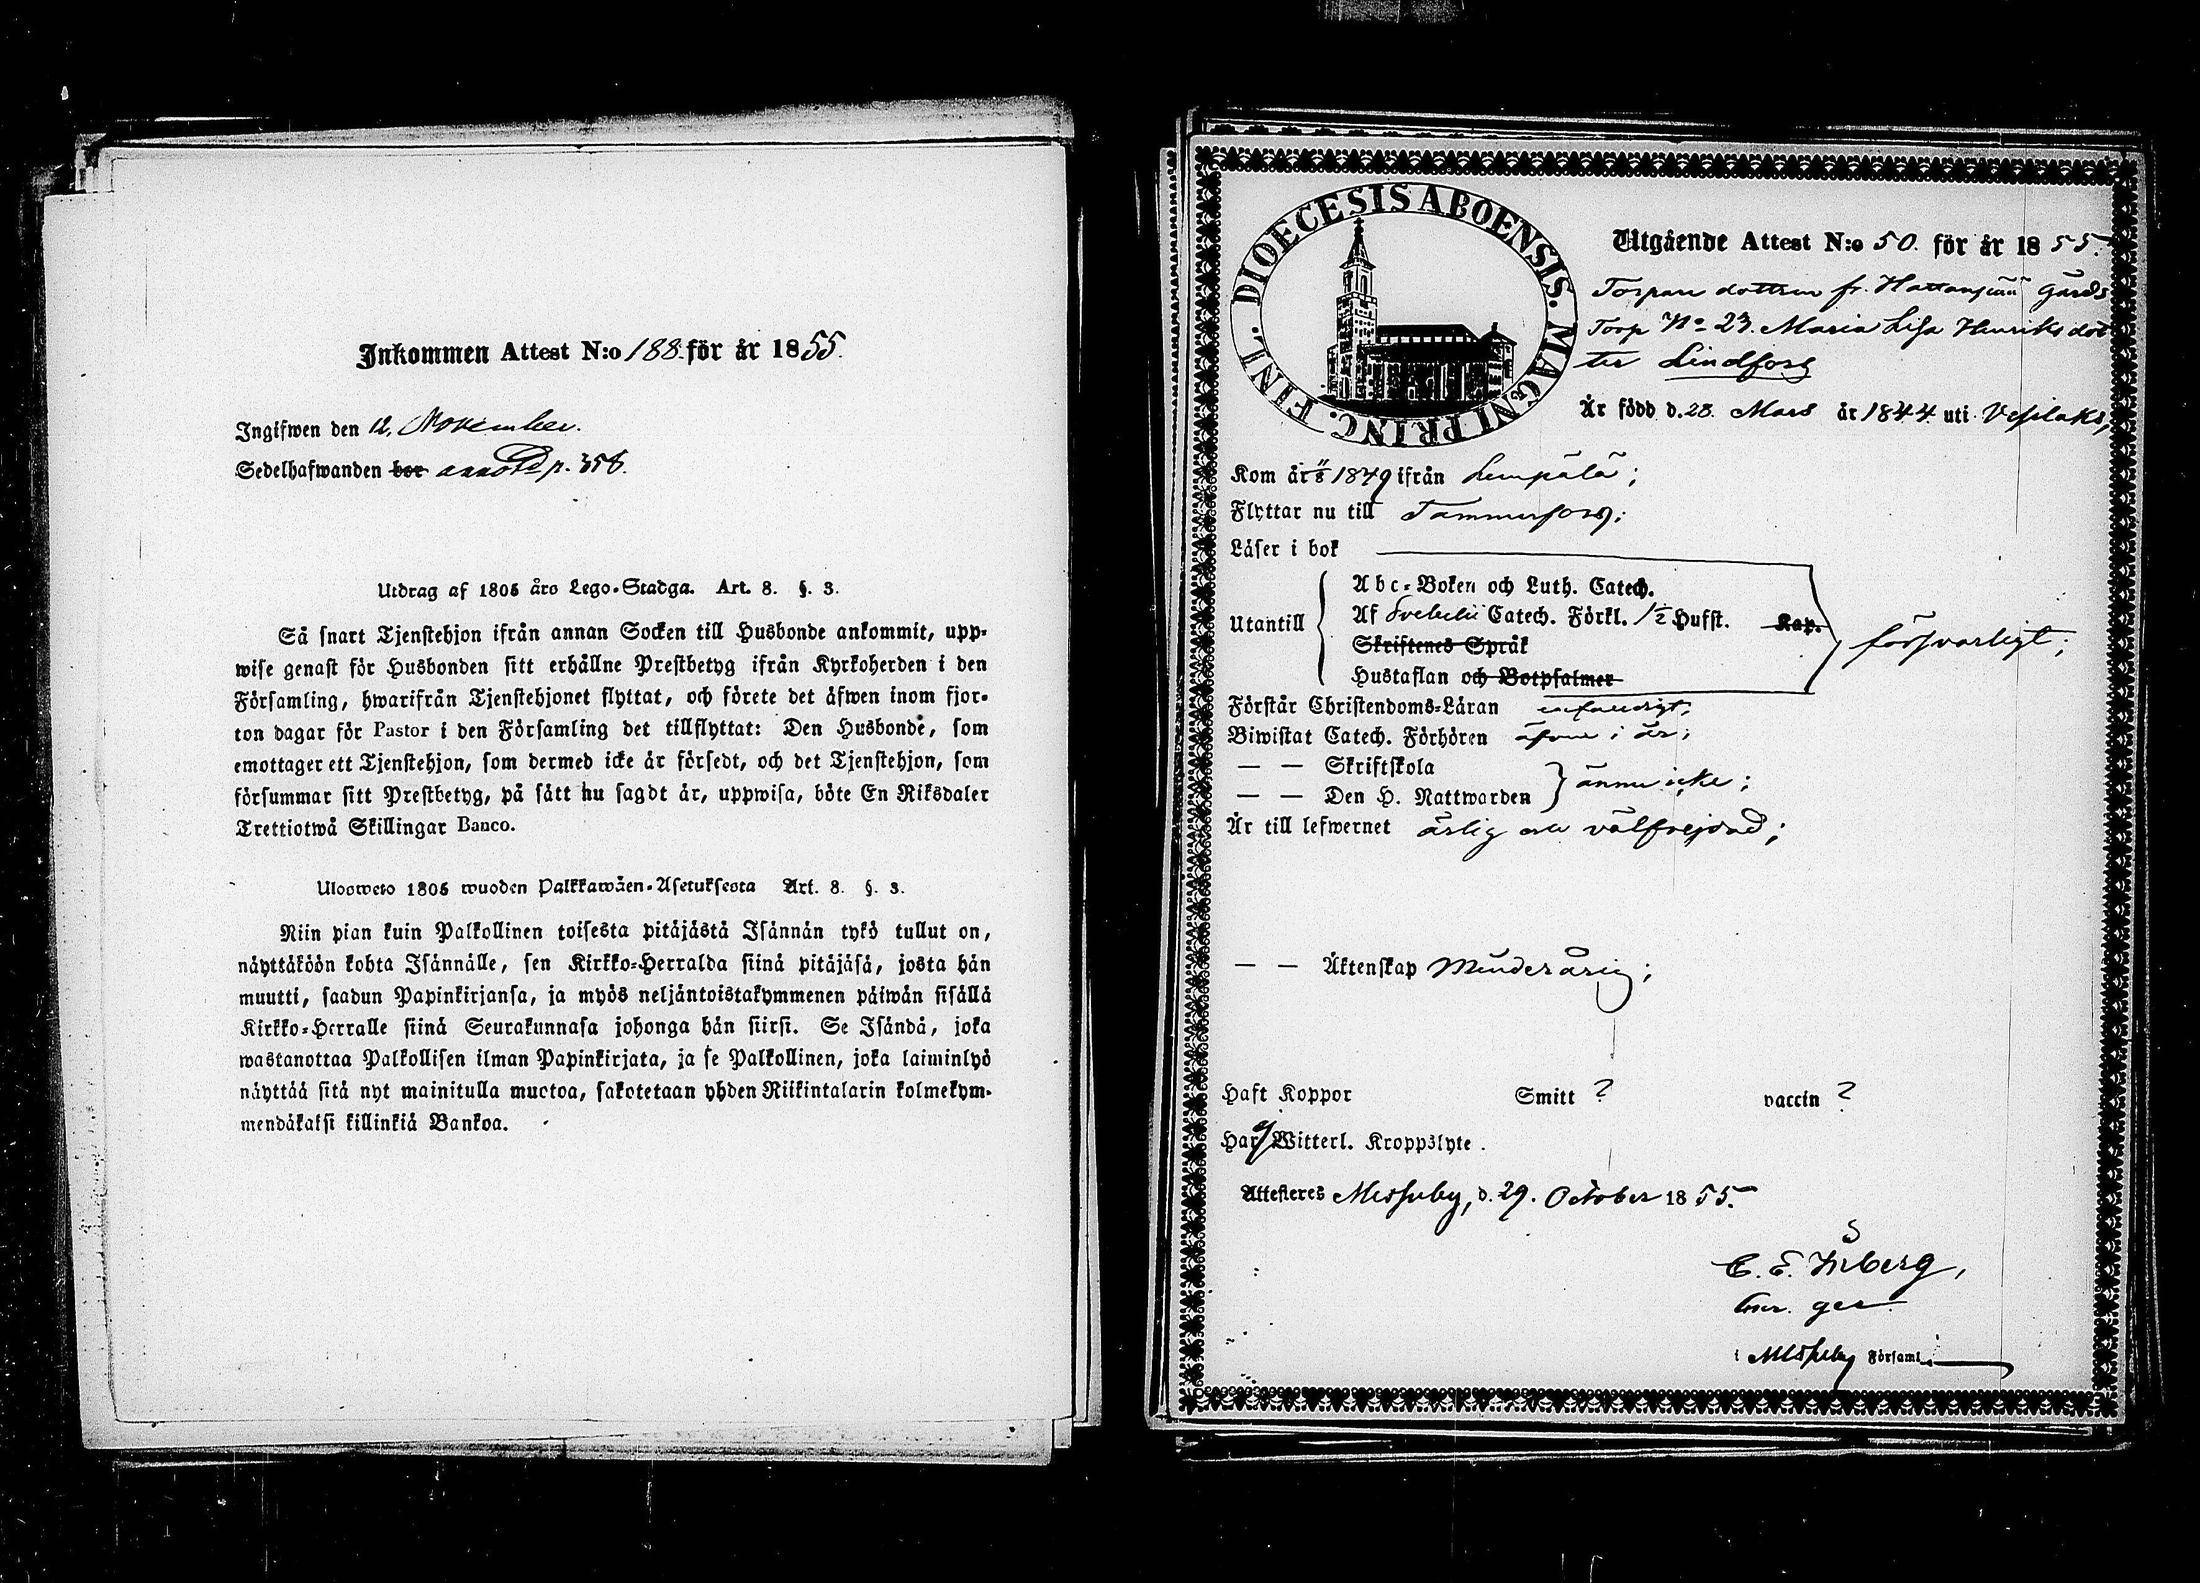 Inkommen Attest N:o 188. för år 1855.
Ingifwen den 12. November.
Sedelhafwanden bor annot. p. 358.
Utdrag af 1805 års Lego-Stadga. Art. 8. §. 3.
Så snart Tjenstehjon ifrån annan Socken till Husbonde ankommit, upp-
wise genast för Husbonden sitt erhållne Prestbetyg ifrån Kyrkoherden i den
Församling, hwarifrån Tjenstehjonet flyttat, och förete det äfwen inom fjor-
ton dagar för Pastor i den Församling det tillflyttat: Den Husbonde, som
emottager ett Tjenstehjon, som dermed icke är försedt, och det Tjenstehjon, som
försummar sitt Prestbetyg, på sätt nu sagdt är, uppwisa, böte En Riksdaler
Trettiotwå Skillingar Banco.
Ulosweto 1805 wuoden Palkkawäen-Asetuksesta Art. 8. §. 3.
Niin pian kuin Palkollinen toisesta pitäjästä Isännän tykö tullut on,
näyttäköön kohta Isännälle, sen Kirkko-Herralda siinä pitäjäsä, josta hän
muutti, saadun Papinkirjansa, ja myös neljäntoistakymmenen päiwän sisällä
Kirkko-Herralle siinä Seurakunnasa johonga hän siirsi. Se Isändä, joka
wastanottaa Palkollisen ilman Papinkirjata, ja se Palkollinen, joka laiminlyö
näyttää sitä nyt mainitulla muotoa, sakotetaan yhden Riikintalarin kolmekym-
mendäkaksi killinkiä Bankoa.
DIOECESIS ABOENSIS. MAGNI PRINC. FINL.
Utgående Attest N:o 50. för år 1855.
Torpare dottren fr. Hattanpää Gårds
Torp No 23. Maria Lisa Henriksdot
ter Lindfors
Är född d. 28. Mars år 1844. uti Vesilaks,
Kom år 1849 ifrån Lempälä;
Flyttar nu till Tammerfors;
Läser i bok
Abc-Boken och Luth. Catech.
Utantill Af Svebelii Catech. Förkl. 1½ Hufst. Kap. försvarligt;
Skriftenes Språk
Hustaflan och Botpsalmer
Förstår Christendoms-Läran enfaldigt;
Biwistat Catech. Förhören äfven i år;
— — Skriftskola
— — Den H. Nattwarden ännu icke;
Är till lefwernet ärlig och välfrejdad;
— — Äktenskap Minderårig;
Haft Koppor Smitt ? vaccin ?
Har ej Witterl. Kroppslyte.
Attesteres Messuby, d. 29. October 1855.
C. E. Åberg,
ger
i Messuby Församl.